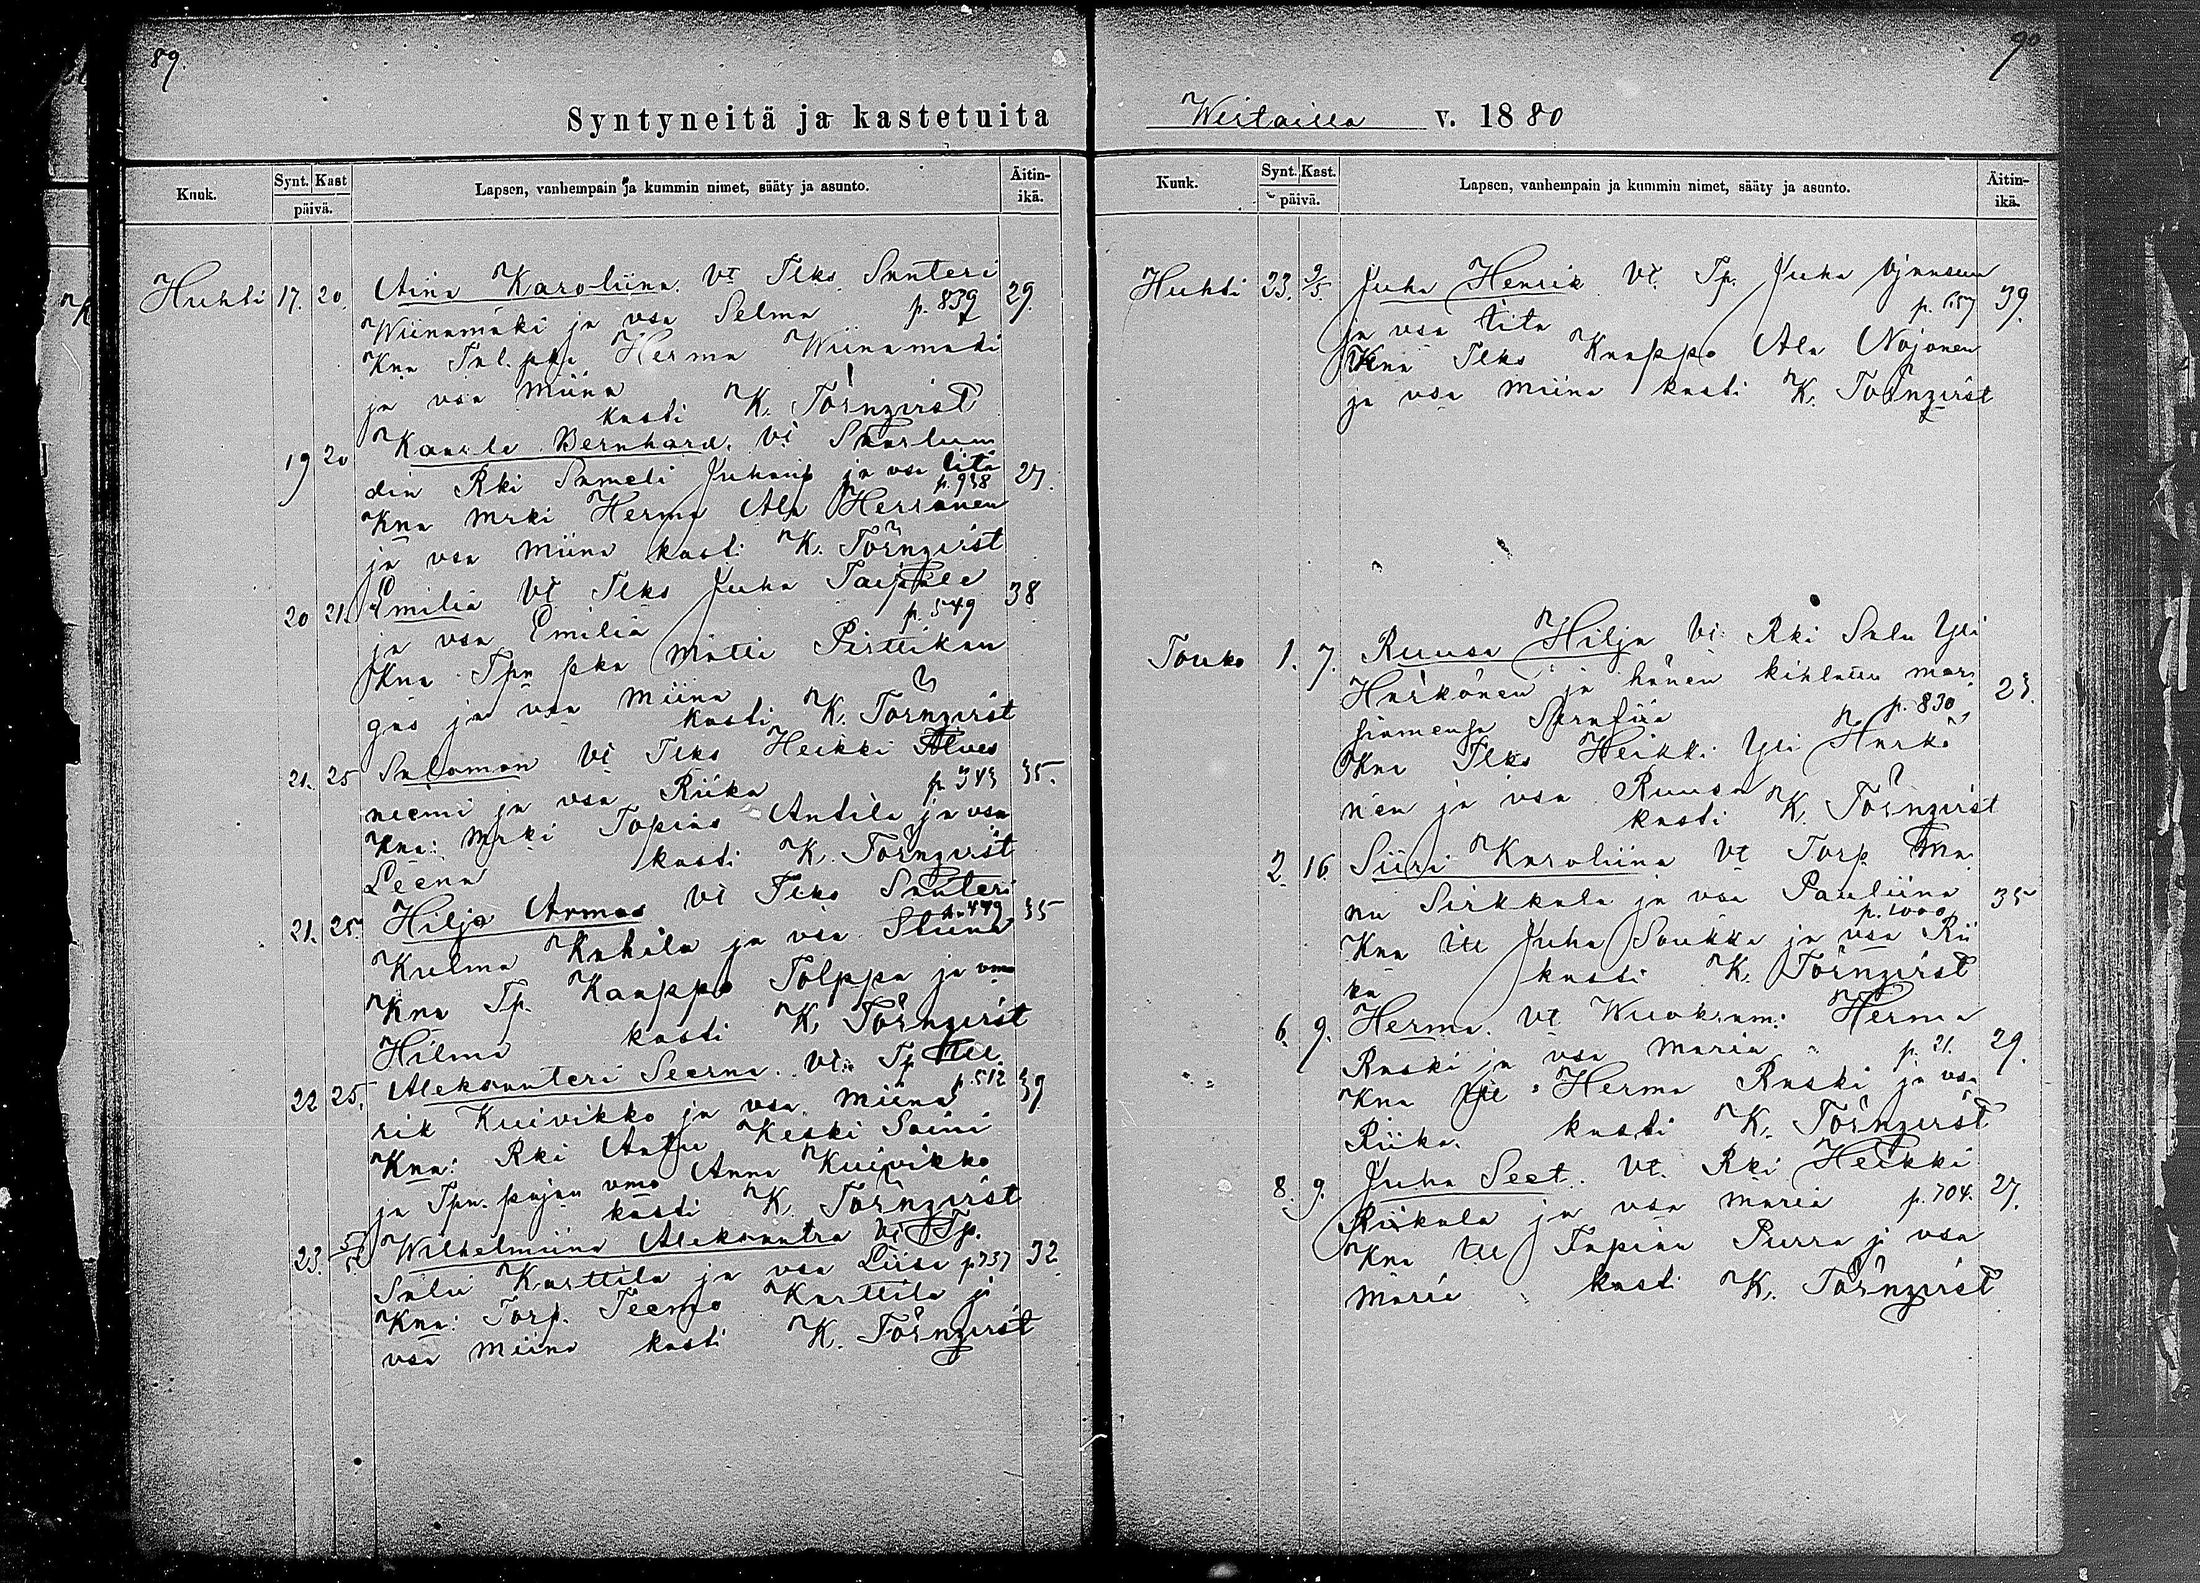 89.
Syntyneitä ja kastetuita
Kuuk.
Synt. Kast
päivä.
Lapsen, vanhempain ja kummin nimet, sääty ja asunto.
Äitin-
ikä.
Huhti 17. 20. Aina Karoliina. Vt Tlks. Santeri 29.
Wiinamäki ja vsa Selma p. 839
Kna Tal. pka Herma Wiinamäki
ja vsa Miina
kasti K. Törnqvist
19 20 Kaarle Bernhard. Vt
din Rki Sameli Juhani ja vsa Iita 27.
p. 938
Kna Mrki Herma Ala Herranen
ja vsa Miina kasti K. Törnqvist
20 21. Emilia Vt Tlks Juha Taipale 38
ja vsa Emilia p. 549
Kna Tpn pka Matti Pirttikan
gas ja vsa Miina
kasti K. Törnqvist
21. 25 Salomon Vt Tlks Heikki Alves
niemi ja vsa Riika p. 343 35.
Kna: Mrki Topias Antila ja vsa
Leena kasti K. Törnqvist
21. 25. Hilja Armas Vt Tlks Santeri
p. 449 35
Kulma Kahila ja vsa Stiina
Kna Tp. Kaappo Tolppa ja vmo
Hilma kasti K. Törnqvist
22 25. Aleksanteri Seerna. Vt. Tp
p. 512 39
rik Kuivikko ja vsa Miina
Kna: Rki Antu Keski Soini
ja Tpn. pojan vmo Anna Kuivikko
kasti K. Törnqvist
23. Wilhelmiina Aleksantra Vt Tp.
Salu Karttila ja vsa Liisa p 737 32
Kna: Torp. Teemo Karttila ja
vsa Miina kasti K. Törnqvist
90
v. 1880
Kuuk.
Synt. Kast.
päivä.
Lapsen, vanhempain ja kummin nimet, sääty ja asunto.
Äitin-
ikä.
Huhti 23. 9/5. Juha Henrik Vt. Tp. Juha 39.
ja vsa Iita
Kna Tlks Kaappo Ala Nojonen
ja vsa Miina kasti K. Törnqvist
Touko 1. 7. Ruusa Hilja Vt. Rki Salu Yli
Harkonen ja hänen kihlattu mor 23.
siamensa Serafiia p. 830
Kna Tlks Heikki Yli Harko
nen ja vsa Ruusa
kasti K. Törnqvist
2. 16 Siiri Karoliina Vt Torp Ma
nu Sirkkala ja vsa Pauliina 35
p. 1000
Kna Itl Juha Soukka ja vsa Rii
ka kasti K. Törnqvist
6. 9. Herma. Vt Wuokram: Herma
Raski ja vsa Maria p. 21. 29.
Kna Itl Herma Raski ja vsa
Riika. kasti K. Törnqvist
8. 9. Juha Seet. Vt. Rki Heikki
Riikala ja vsa Maria p. 704. 27.
Kna Itl Tapian Purra ja vsa
Maria kasti K. Törnqvist